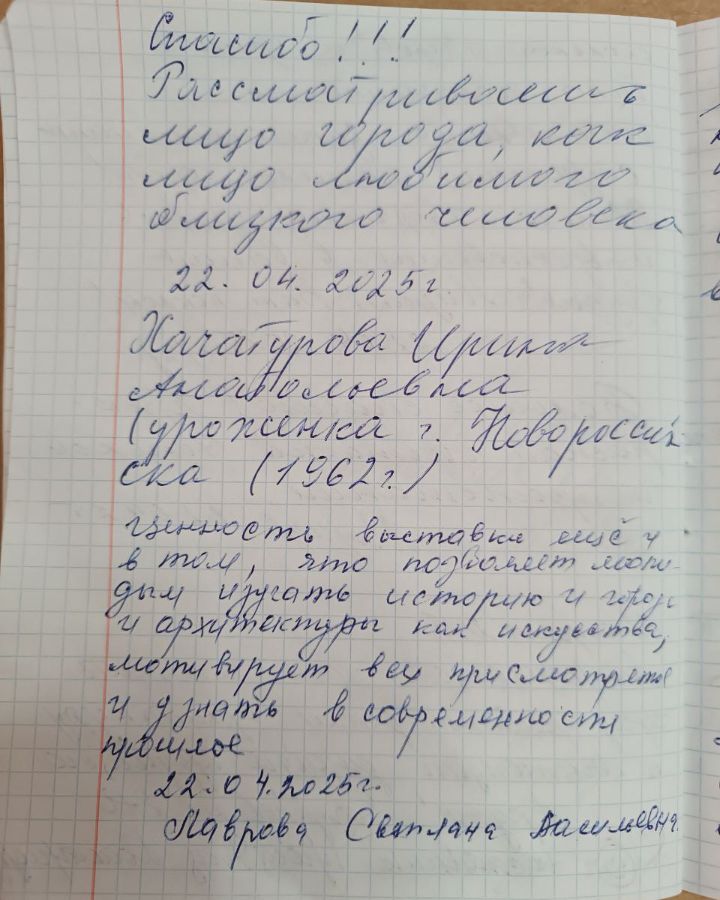 Спасибо!!!
Рассматриваешь
лицо города, как
лицо любимого
близкого человека
22.04.2025г.
Хачатурова Ирина
Анатольевна
(уроженка г. Новороссий-
ска (1962г.)
ценность выставки ещё и
в том, что позволяет моло-
дым изучать историю и города
и архитектуры как искусства,
мотивирует всех присмотреться
и узнать в современности
прошлое
22.04.2025г.
Лаврова Светлана Васильевна.